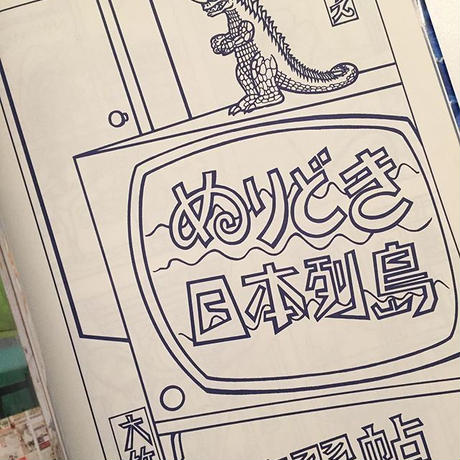 ぬりどき
日本列島
大
帖